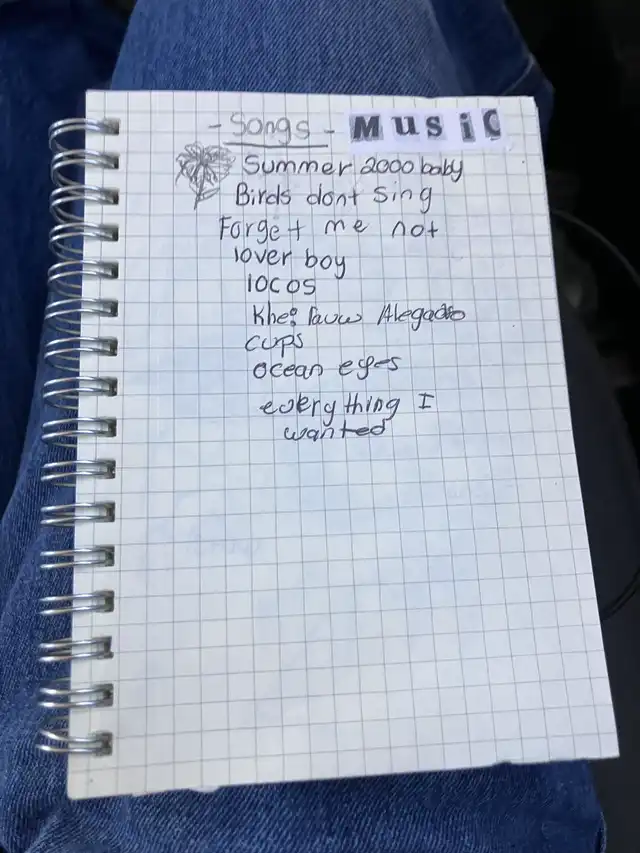 - Songs - MUSiC
Summer 2000 baby
Birds dont sing
Forget me not
lover boy
locos
cups
ocean eyes
everything I
wanted